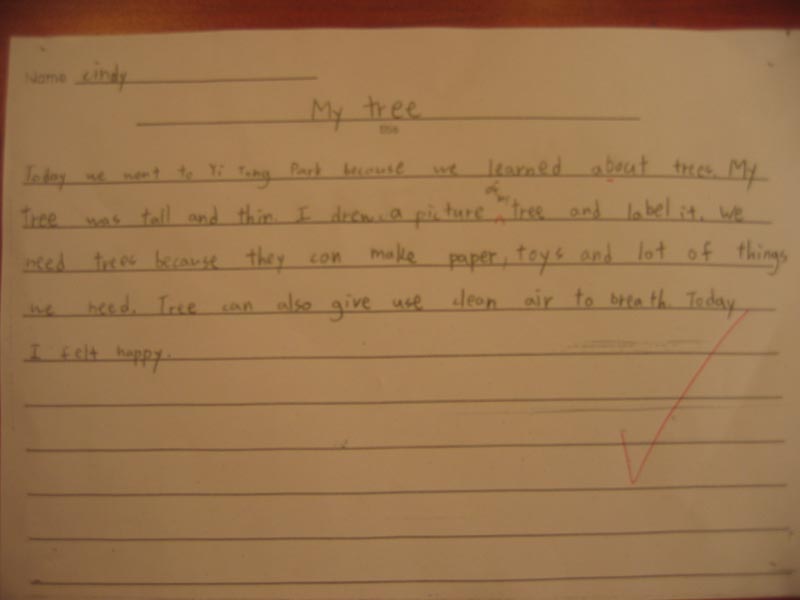 Name cindy
My tree
Today we went to Yi Tong Park because we learned about trees. My
of my
tree was tall and thin. I drew a picture ^ tree and label it. We
need trees because they can make paper, toys and lot of things
we need. Tree can also give use clean air to breath. Today
I felt happy.